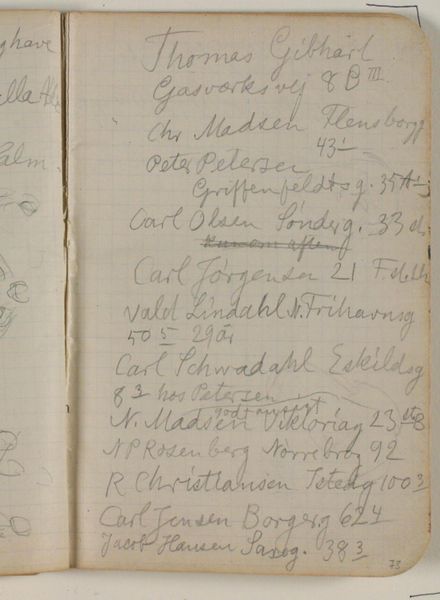 ghave
lla
alm
Thomas Gibhart
Gasværksvej 8 B III.
Chr Madsen Flensborgg
43 1
Peter Petersen
Griffenfeldtsg. 35 A
Carl Olsen Sønderg. 33
Carl Jørgensen 21
Vald Lindahl N. Frihavnsg
50 5 29 år
Carl Schwadahl Eskildsg
8 3 hos Petersen
godt ansigt
N. Madsen Viktoriag 23 st 8
N P Rosenberg Nørrebrog 92
R Christiansen Istedg 100 3
Carl Jensen Borgerg 62 4
Jacob Hansen Saxog. 38 3
73